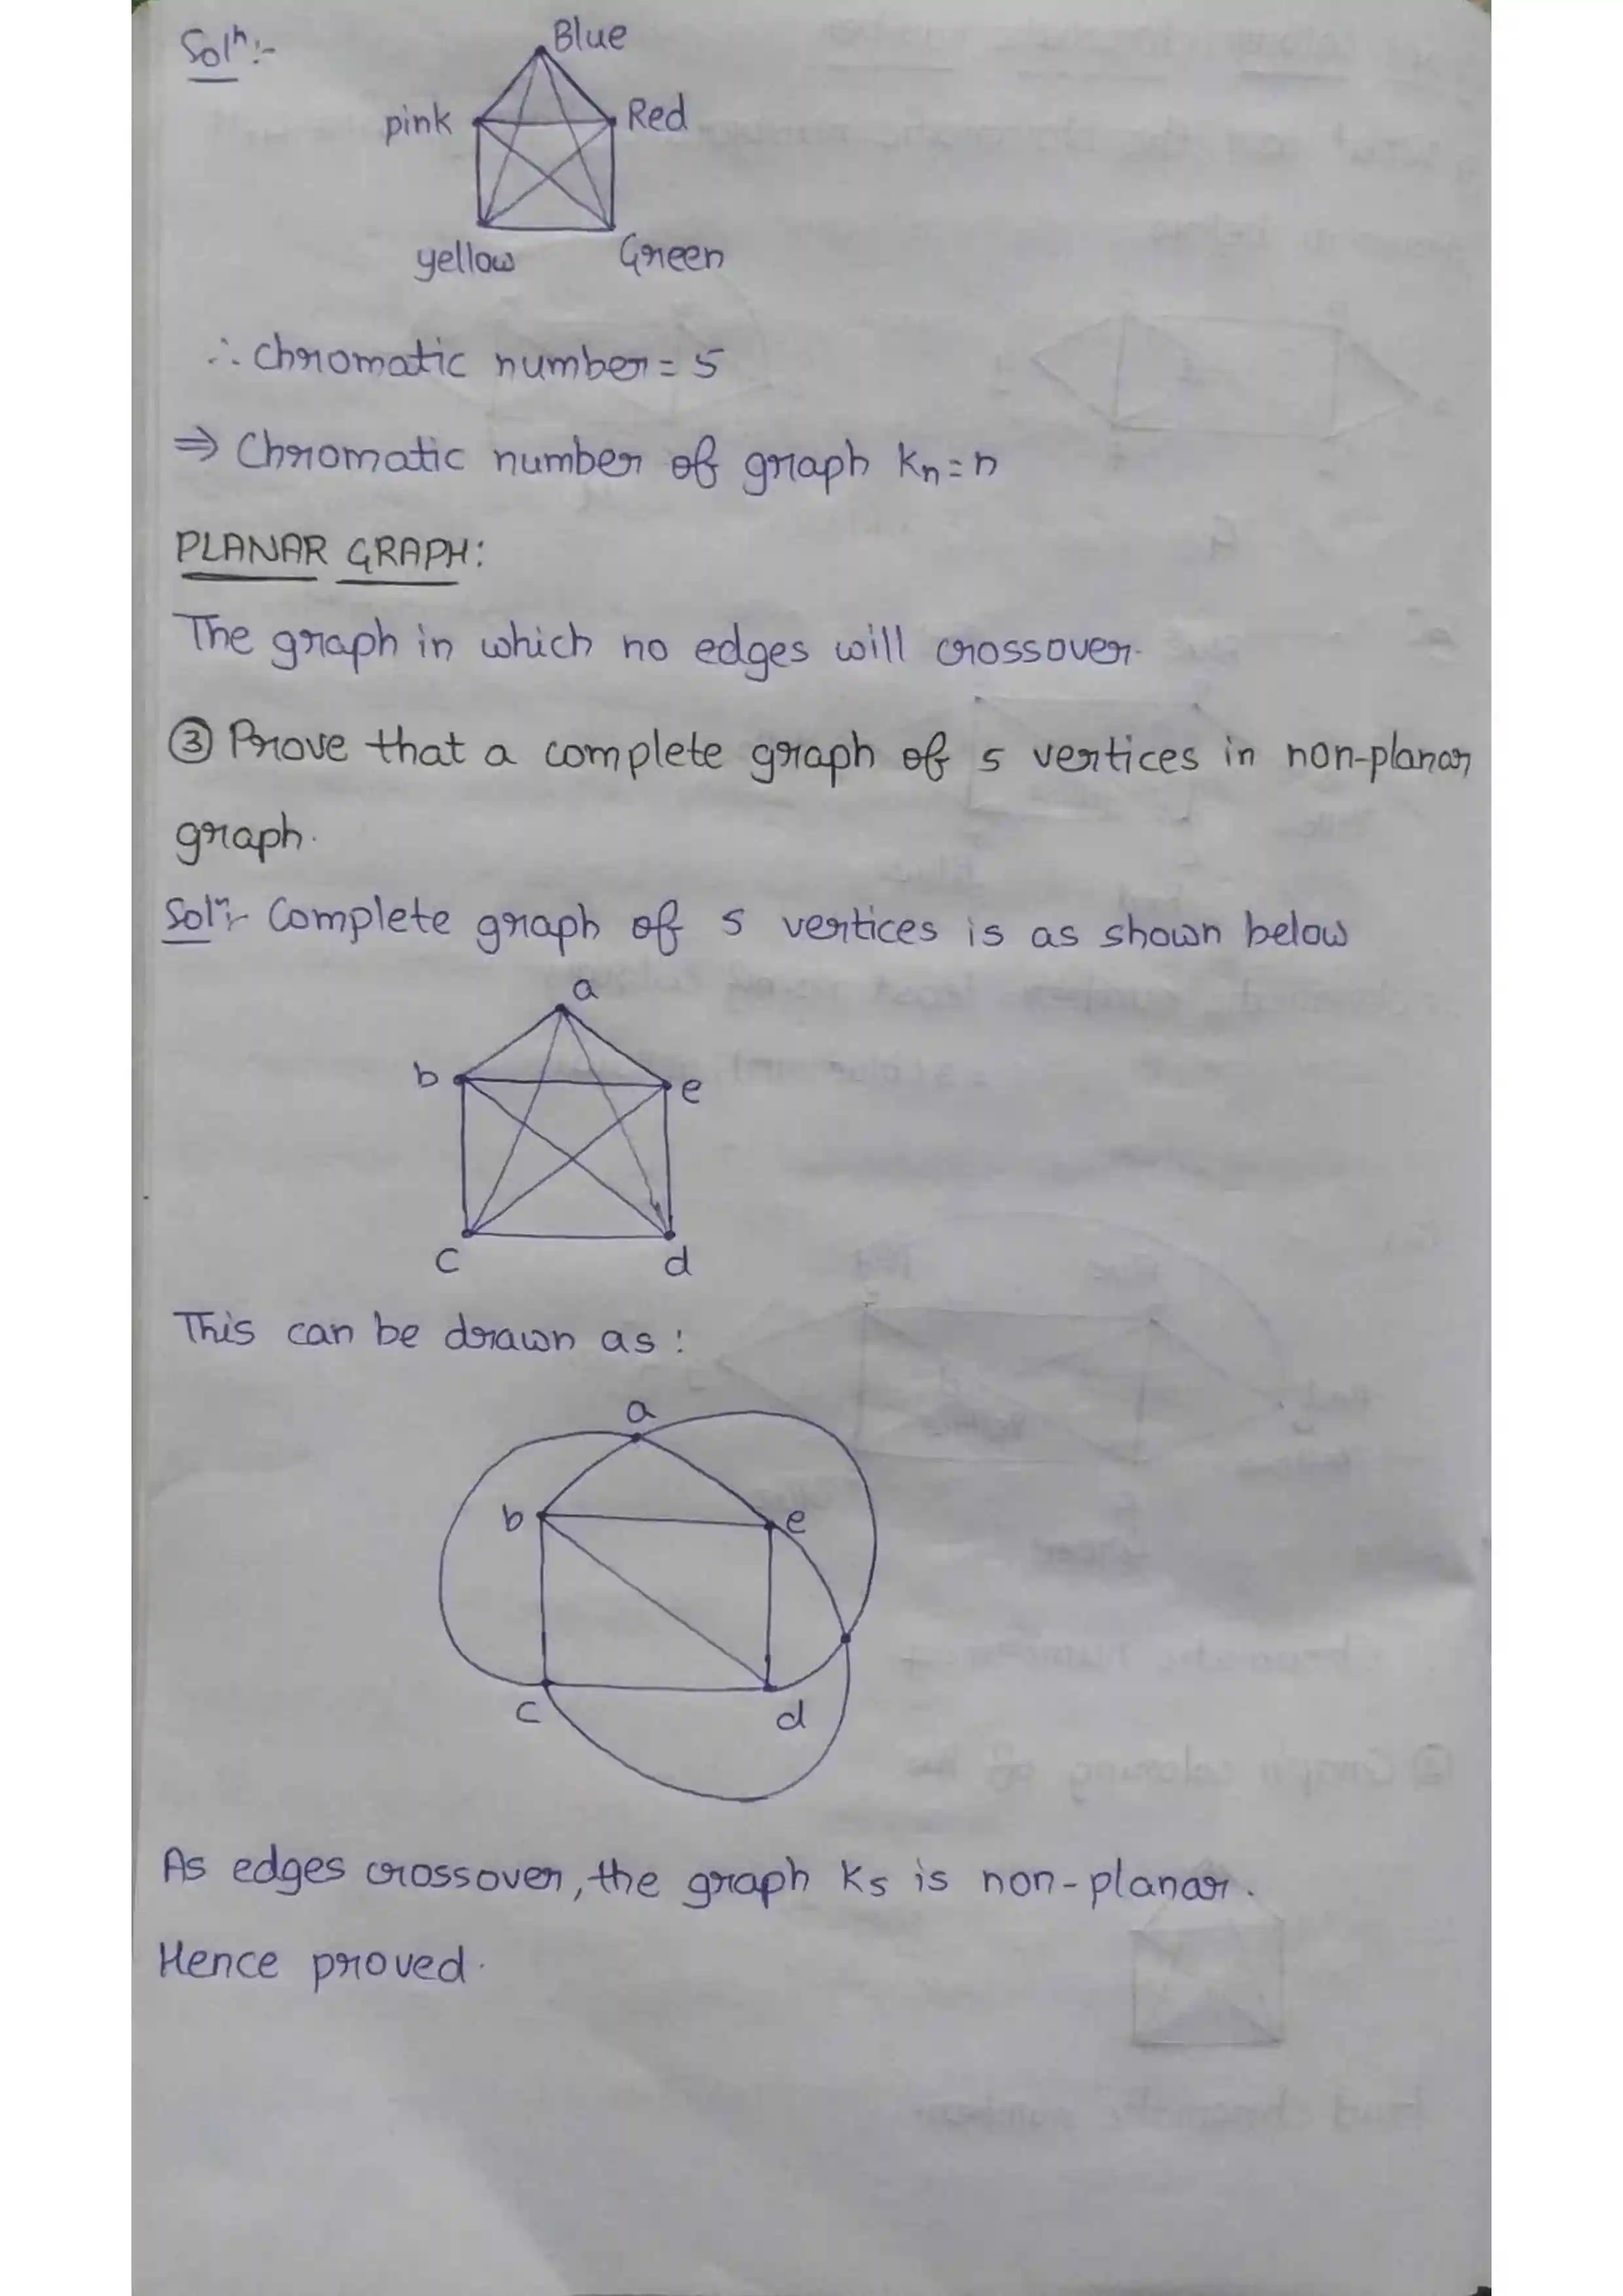 Solⁿ:-
Blue
pink
Red
yellow
Green
∴ chromatic number = 5
⇒ Chromatic number of graph Kn = n
PLANAR GRAPH:
The graph in which no edges will crossover.
③ Prove that a complete graph of 5 vertices in non-planar
graph.
Solⁿ:- Complete graph of 5 vertices is as shown below
a
b
e
c
d
This can be drawn as :
a
b
e
c
d
As edges crossover, the graph K5 is non-planar.
Hence proved.